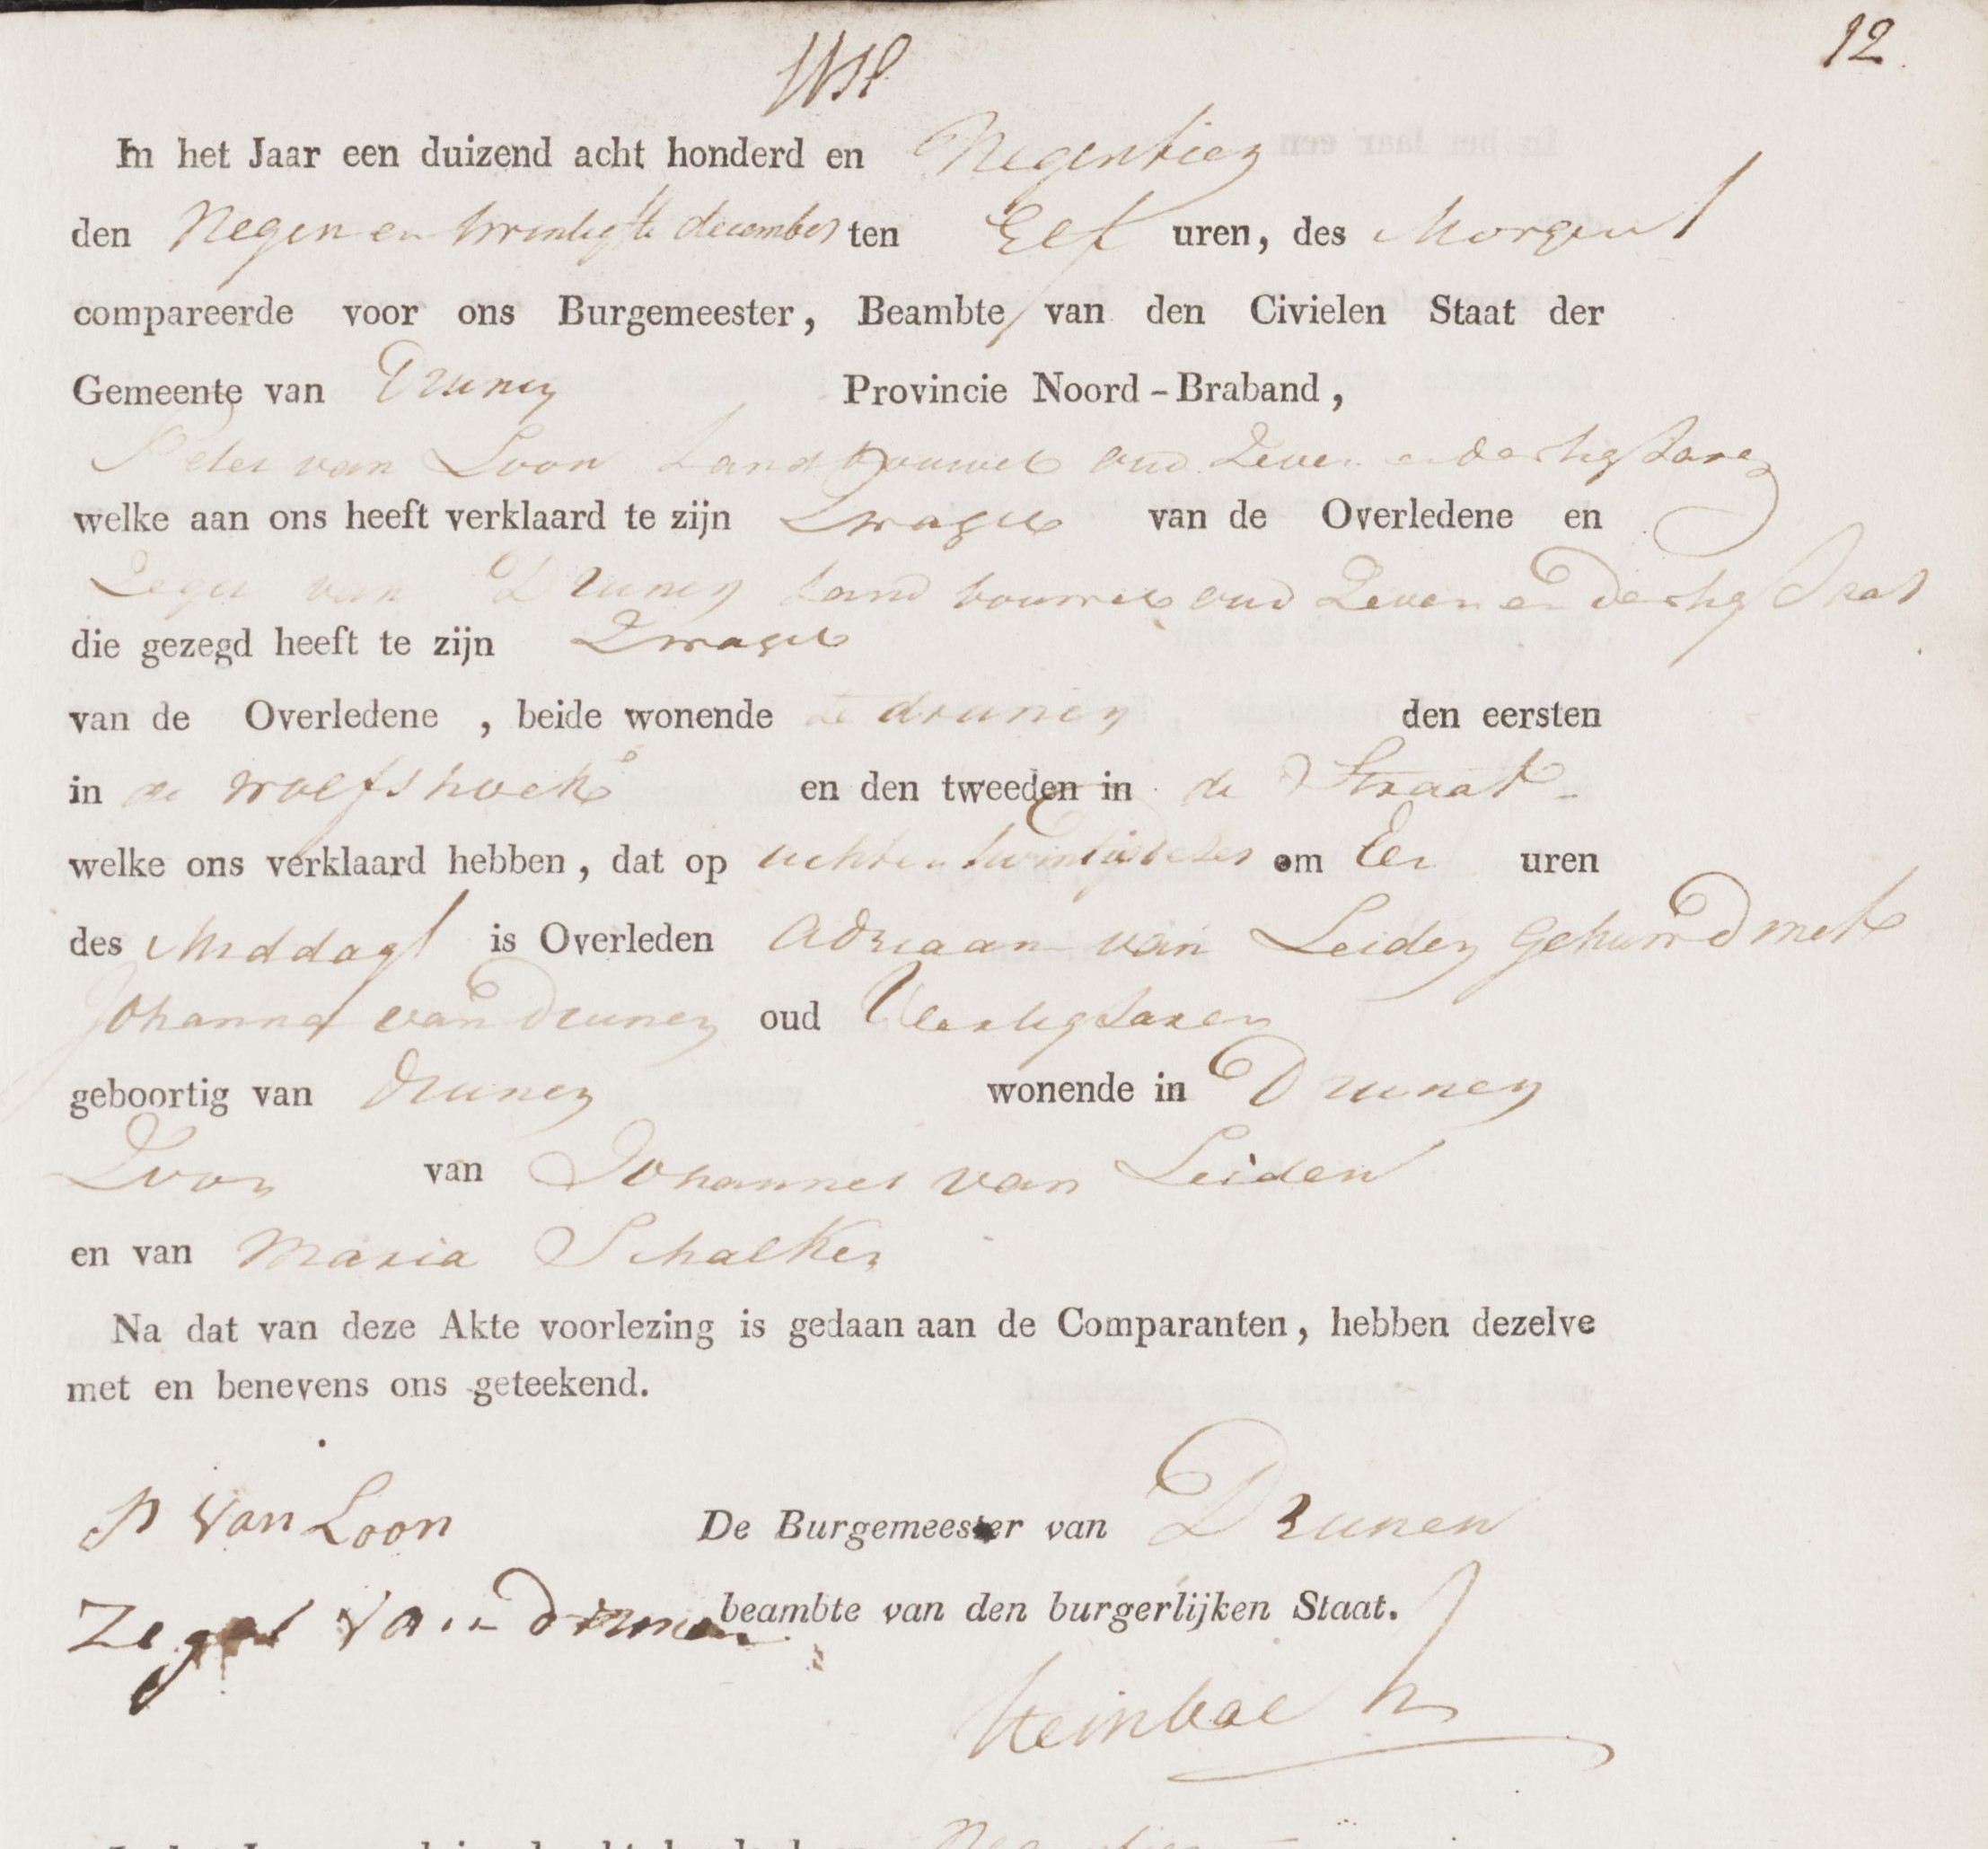 12
In het Jaar een duizend acht honderd en Negentien
den Negen en twintigste december ten Elf uren, des Morgens
compareerde voor ons Burgemeester, Beambte van den Civielen Staat der
Gemeente van Drunen Provincie Noord-Braband,
Peter van Loon Landbouwer oud Zeven en dertig Jaren
welke aan ons heeft verklaard te zijn Zwager van de Overledene en
Zeger van Drunen Landbouwer oud Zeven en dertig Jaar
die gezegd heeft te zijn Zwager
van de Overledene, beide wonende te drunen den eersten
in de wolfshoek en den tweeden in de Straat
welke ons verklaard hebben, dat op achten twintig deser om Een uren
des Middags is Overleden Adriaan van Leiden Gehuwd met
Johanna van Drunen oud Veertig Jaren
geboortig van Drunen wonende in Drunen
Zoon van Johannes van Leiden
en van Maria Schalken
Na dat van deze Akte voorlezing is gedaan aan de Comparanten, hebben dezelve
met en benevens ons geteekend.
P van Loon De Burgemeester van Drunen
Zeger van drunen beambte van den burgerlijken Staat.
Steinbach